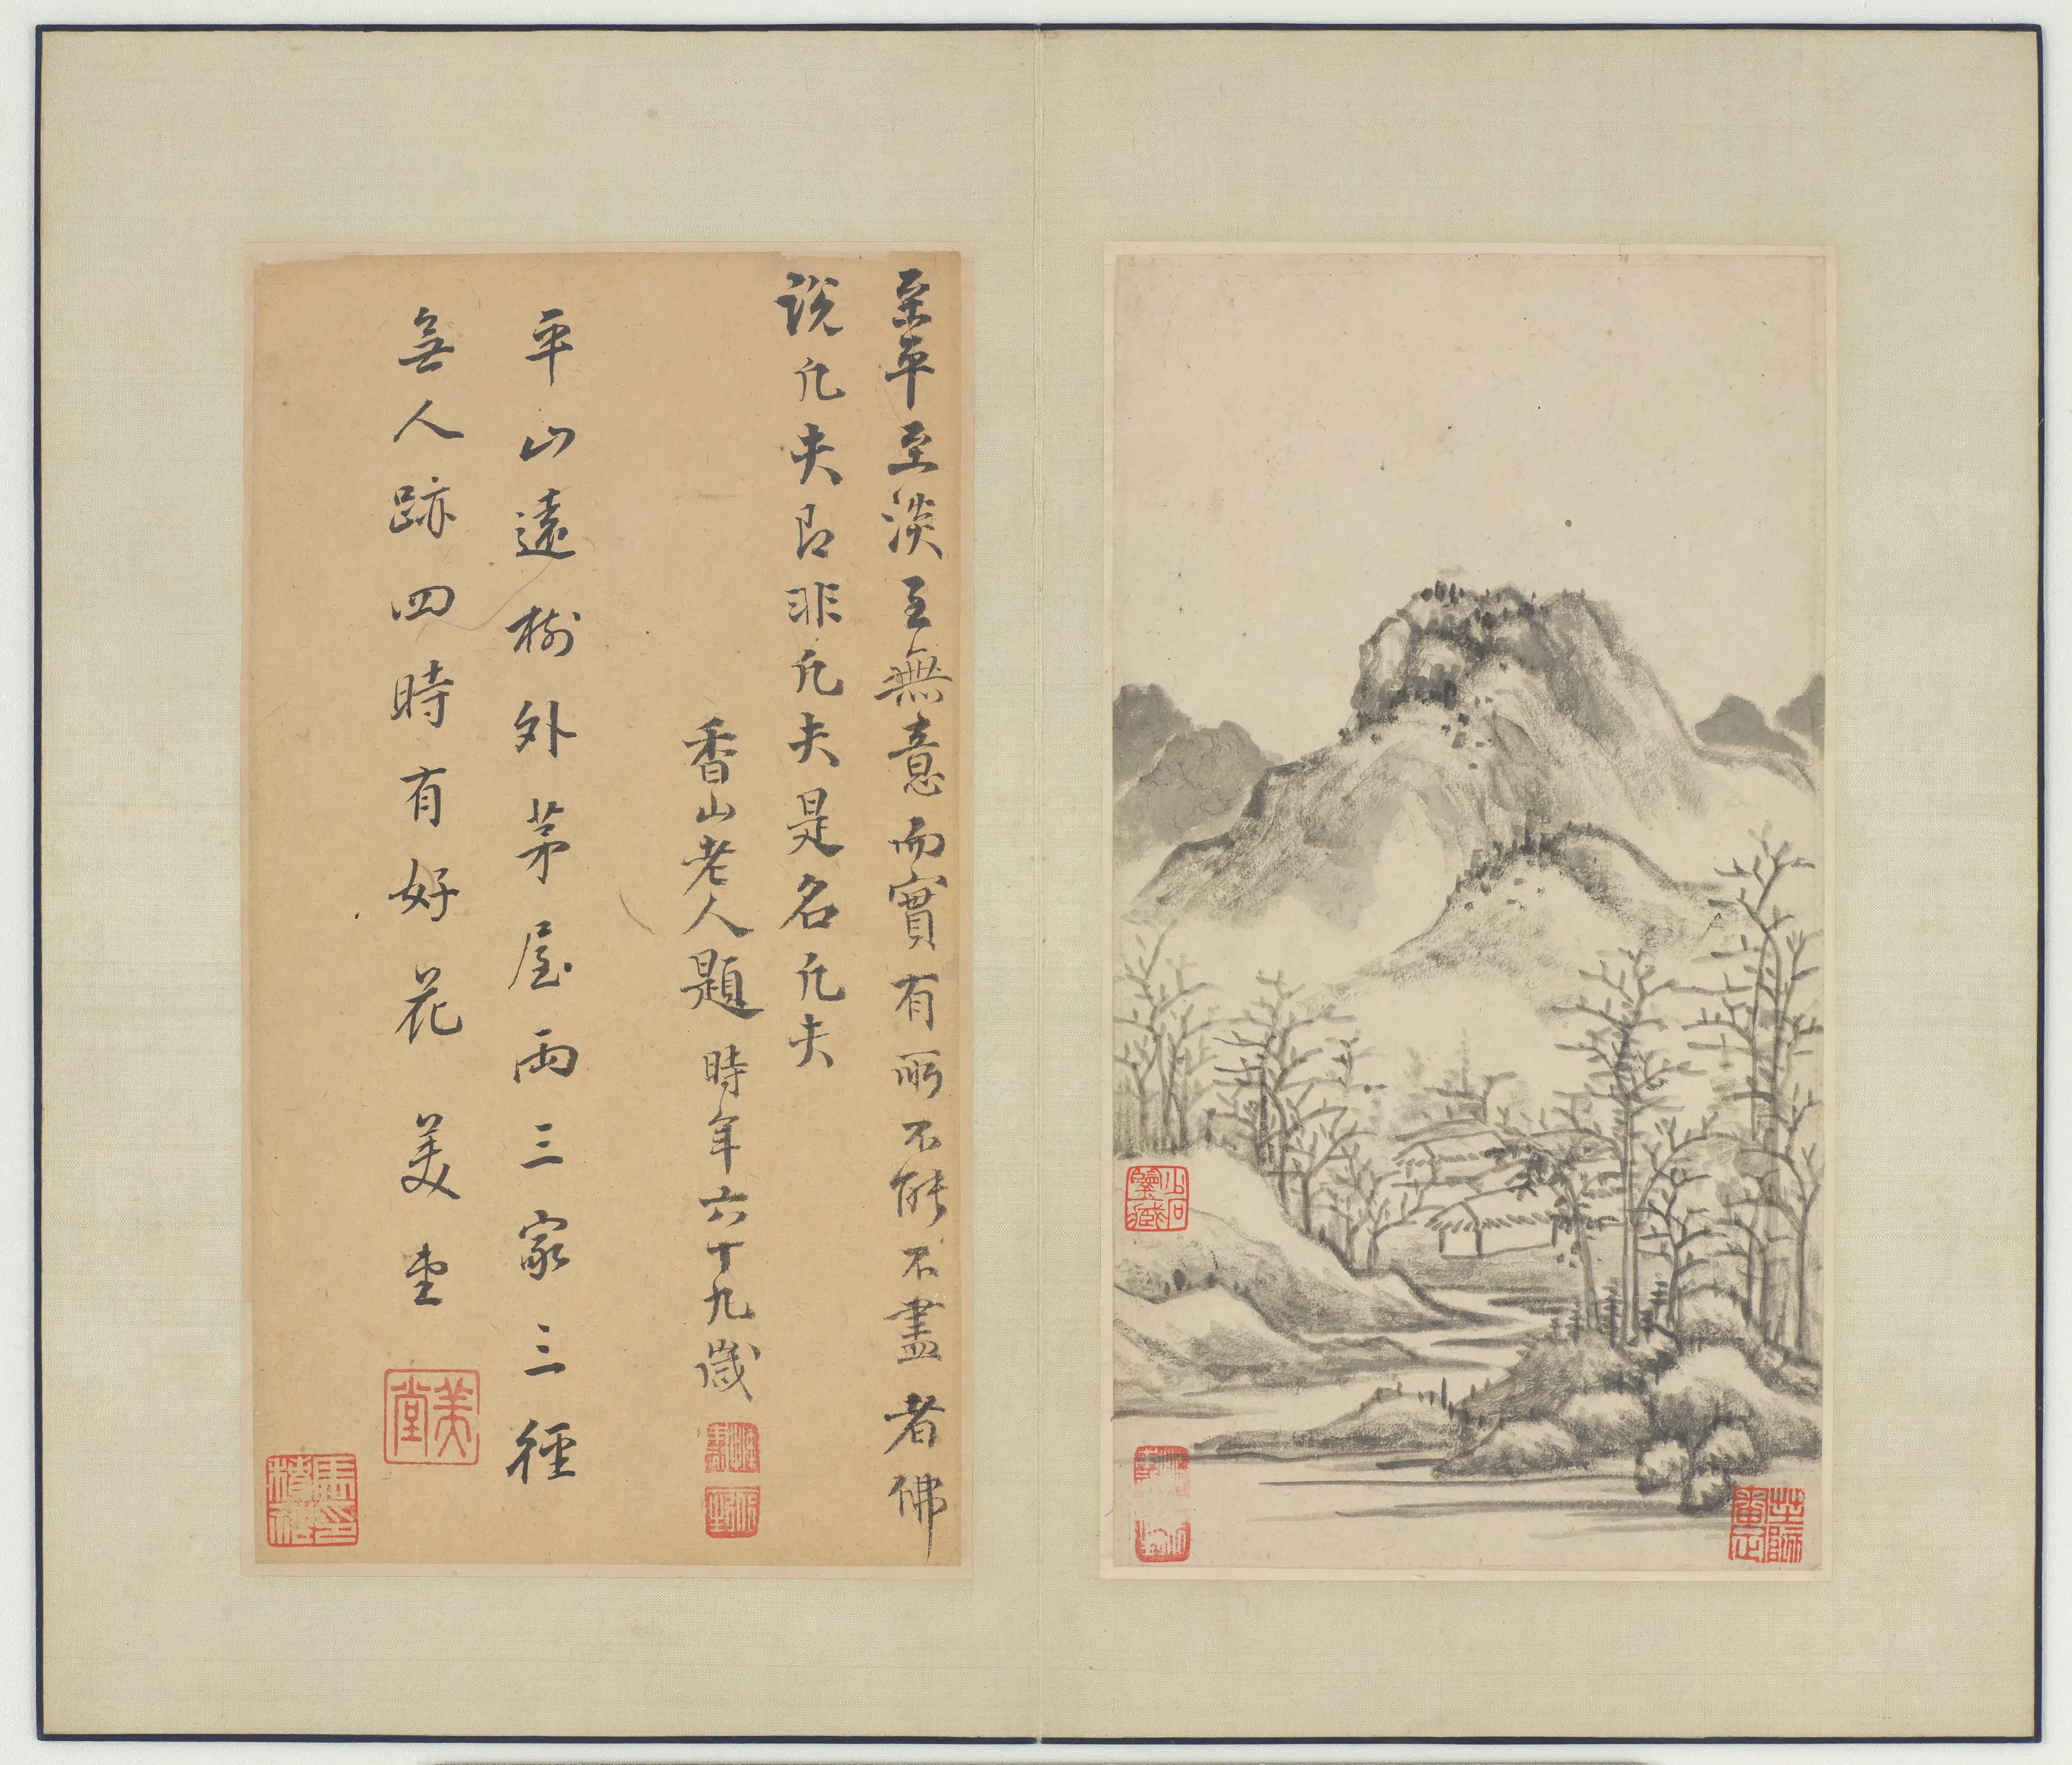 至平至淡至無意而實有所不能不盡者佛
說凡夫即非凡夫是名凡夫
香山老人題 時年六十九歲
平山遠樹外茅屋兩三家三徑
無人跡四時有好花 美堂
美堂